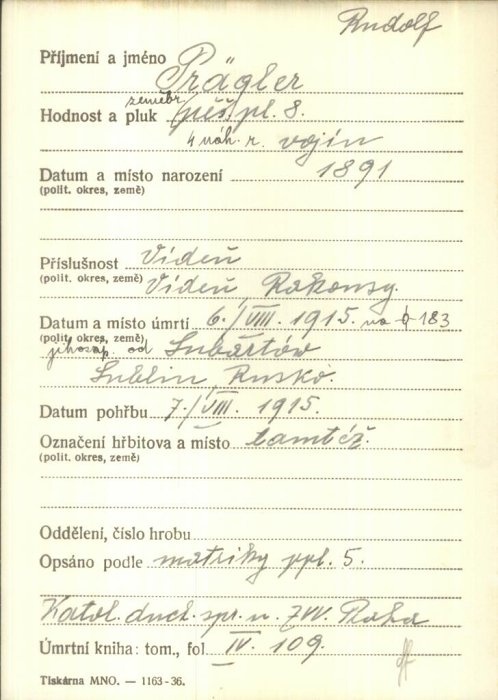 Rudolf
Příjmení a jméno Prägler
zeměbr.
Hodnost a pluk pěš. pl. 8.
4 náh. r. vojín
Datum a místo narození 1891
(polit. okres, země)
Příslušnost Vídeň
(polit. okres, země) Vídeň Rakousy.
Datum a místo úmrtí 6./VIII. 1915. na 183
(polit. okres, země)
jihozáp. od Lubartów
Lublin, Rusko.
Datum pohřbu 7./VIII. 1915.
Označení hřbitova a místo tamtéž.
(polit. okres, země)
Oddělení, číslo hrobu
Opsáno podle matriky ppl. 5.
Katol. duch. spr. u ZVV. Praha
Úmrtní kniha: tom., fol IV. 109.
Tiskárna MNO. — 1163-36.